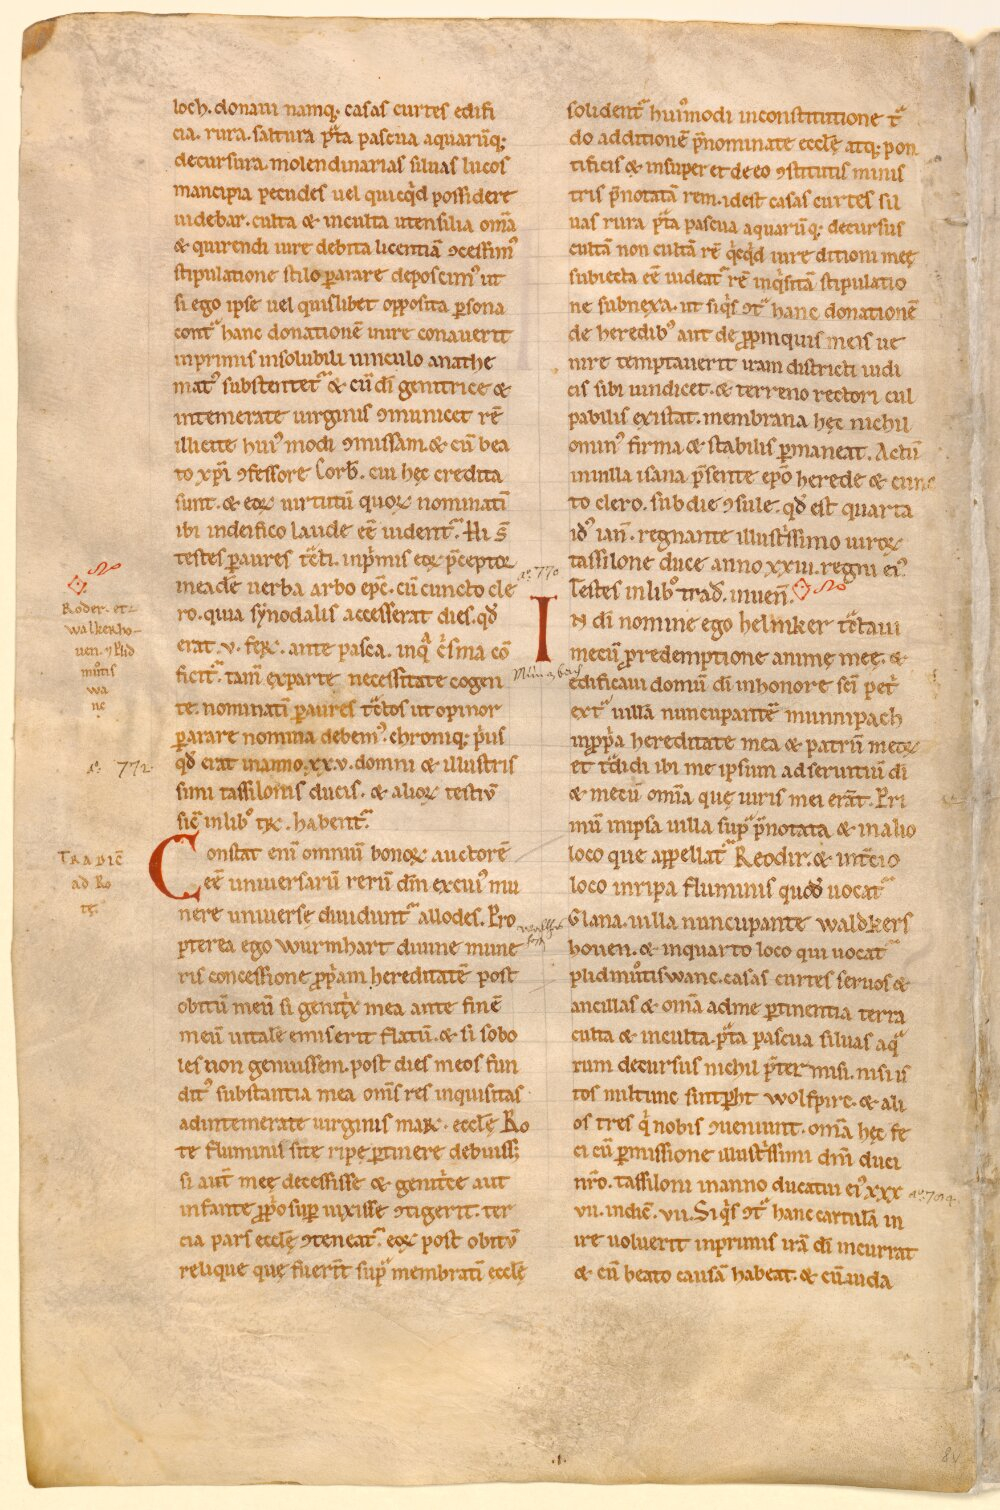 loch. donaui namq; casas curtes edifi
cia. rura. saltura p̃ta pascua aquarūq;
decursura. molendinarias siluas lucos
mancipia pecudes uel quicq̇d possidere
uidebar. culta & inculta utensilia om̄a
& quirendi iure debita licentiā ꝯcessim᷒
stipulatione stilo ꝑarare deposcim᷒ ut
si ego ipse uel quislibet opposita ꝑsona
cont̃ hanc donationē inire conauerit
inprimis insolubili uinculo anathe
mat᷒ substentet̃ & cū di̅ genitrice &
intemerate uirginis ꝯmunicet rē
illicite hui᷒ modi ꝯmissam. & cū bea
to xp̅i ꝯfessore Corb̅. cui hęc credita
sunt. & eoꝝ uirtutū quoꝝ nominati̅
ibi indeifico laude eē uident̃. Hi s̄
testes ꝑaures t̃cti. inp̃mis eoꝝ p̃ceptoꝝ
meadē uerba arbo ep̅c. cū cuncto cle
ro. quia synodalis accesserat dies. qd̅
erat .v. feꝝ. ante pasca. inq̃ c̃sma cō
ficit̃. tam̅ exparte necessitate cogen
te. nominati̅ ꝑaures t̃ctos ut opinor
ꝑarare nomina debem᷒. chroniq; p̃us
qd̅ erat inanno .xx.v. domni & illustris
simi tassilonis ducis. & alioꝝ testiū
sic̅ inlib᷒ tꝝ. habent̃.
Constat eni̅ omniū bonoꝝ auctorē
eē uniuersarū rerū dn̅m excui᷒ mu
nere uniuersę diuidunt̃ allodes. Pro
pterea ego wurmhart diuine mune
ris concessione ꝓp̃am hereditatē post
obitū meū si genit̃x mea ante finē
meū uitale emiserit flatū. & si sobo
les non genuissem. post dies meos fun
dit᷒ substantia mea om̅s res inquisitas
adintemerate uirginis maꝝ. ecclę Ro
te fluminis site ripę ꝑtinere debuiss;
si aut̅ meę decessisse & genit̃ce aut
infante ꝓp̃o suꝑ uixisse ꝯtigerit. ter
cia pars ecclę ꝯteneat̃. eoꝝ post obitū
relique que fueri̅t sup̃ membrati̅ ecclę
Roder. et
walkerho-
uen. & Plid
muotis
wa
nc
aͦ. 772.
TRADIC̅
ad Ro
tę.
solident̃ hui᷒modi inconstitutione t̃
do additionē p̃nominate ecclę atq; pon
tificis & insuper et de eo ꝯstitutis minis
tris p̃notatā rem. idest casas curtes sil
uas rura p̃ta pascua aquarūq; decursus
cultā non cultā rē q̇cq̇d iure ditioni meę
subiecta eē uideat̃ rē inq̇sitā stipulatio
ne subnexa. ut siq̇s ꝯt̃ hanc donationē
de heredib᷒ aut de ꝓpinquis meis ue
nire temptauerit iram districti iudi
cis sibi uindicet. & terreno rectori cul
pabilis existat. membrana hęc nichil
omin᷒ firma & stabilis ꝑmaneat. Actū
inuilla usana p̃sente ep̅o herede & cunc
to clero. sub die ꝯsule. qd̅ est quarta
id᷒ ian̅. regnante illustrissimo uiroꝝ
tassilone duce anno xxiii. regni ei᷒.
Testes inlib᷒ trad̅. inuen̅.
aͦ. 770
IN di̅ nomine ego helmker t̃ctaui
mecū ꝓredemptione animę meę. &
edificaui domū di̅ inhonore sci̅ pet̃
ext̃ uillā nuncupantē munnipach
inꝓp̃a hereditate mea & patrū meoꝝ
et t̃didi ibi me ipsum ad seruitiū di̅
& mecū om̅a quę iuris mei era̅t. Pri
mū inipsa uilla sup̃ p̃notata & in alio
loco que appellat̃ Reodir. & int̃cio
loco inripa fluminis quod uocat̃
Glana. uilla nuncupante waldkers
houen. & inquarto loco qui uocat̃
plidmuotiswanc. casas curtes seruos &
ancillas & om̅a adme ꝑtinentia terra
culta & inculta. p̃ta pascua siluas aq̃
rum decursus nichil p̃termisi. nisi is
tos miltunc sintꝑht wolfpirc. & ali
os tres q̇ nobis ꝯueniunt. om̅a hęc fe
ci cū ꝑmissione illustrissimi dn̅i duci
nr̅o. tassiloni inanno ducatui ei᷒ xxx
vii. indic̅. vii. Siq̇s ꝯt̃ hanc cartulā in
ire uoluerit inprimis irā di̅ incurrat
& cū beato causā habeat. & cū iuda
aͦ. 784.
84